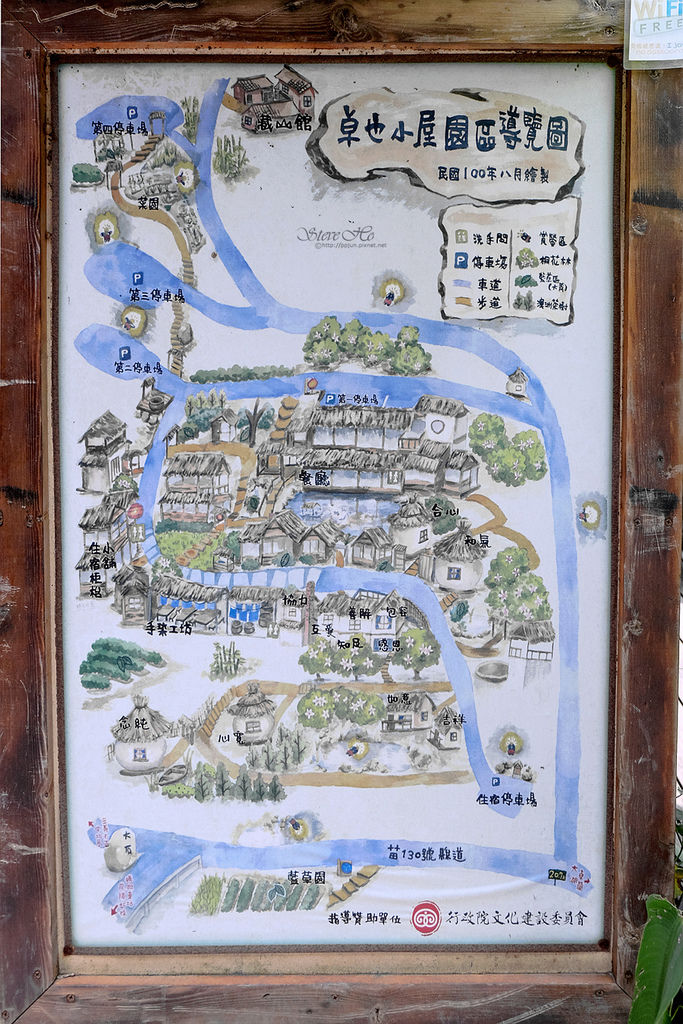 WiFi
FREE
卓也小屋園區導覽圖
民國100年八月繪製
藏山館
第四停車場
菜園
洗手間
賞螢區
停車場
桐花林
車道
藍染區
步道
澳洲茶樹
Steve Ho
©http://ppjun.pixnet.net
第三停車場
第二停車場
第一停車場
餐廳
合心
和氣
小舖
住宿柜枱
手染工坊
協力
互愛
善解
包容
知足
感恩
如意
吉祥
念純
心寬
住宿停車場
苗130號縣道
藍草園
指導贊助單位
行政院文化建設委員會